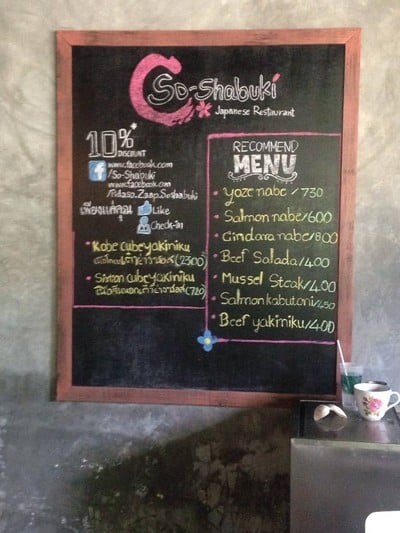 So-Shabuki
Japanese Restaurant
10%
DISCOUNT
www.facebook.com
/So-Shabuki
www.facebook.com
เพียงแค่คุณ Like
Check-in
Kobe cubeyakiniku
(2300)
cubeyakiniku
(720)
RECOMMEND
MENU
yoze nabe / 730
Salmon nabe/600
Gindara nabe/800
Beef Salada/400
Mussel Steak/400
Salmon kabutoni/450
Beef yakiniku/400